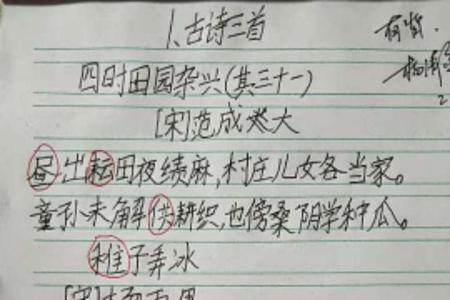 1、古诗三首
四时田园杂兴(其三十一)
[宋]范成大
昼出耘田夜绩麻,村庄儿女各当家。
童孙未解供耕织,也傍桑阴学种瓜。
稚子弄冰
[宋]杨万里